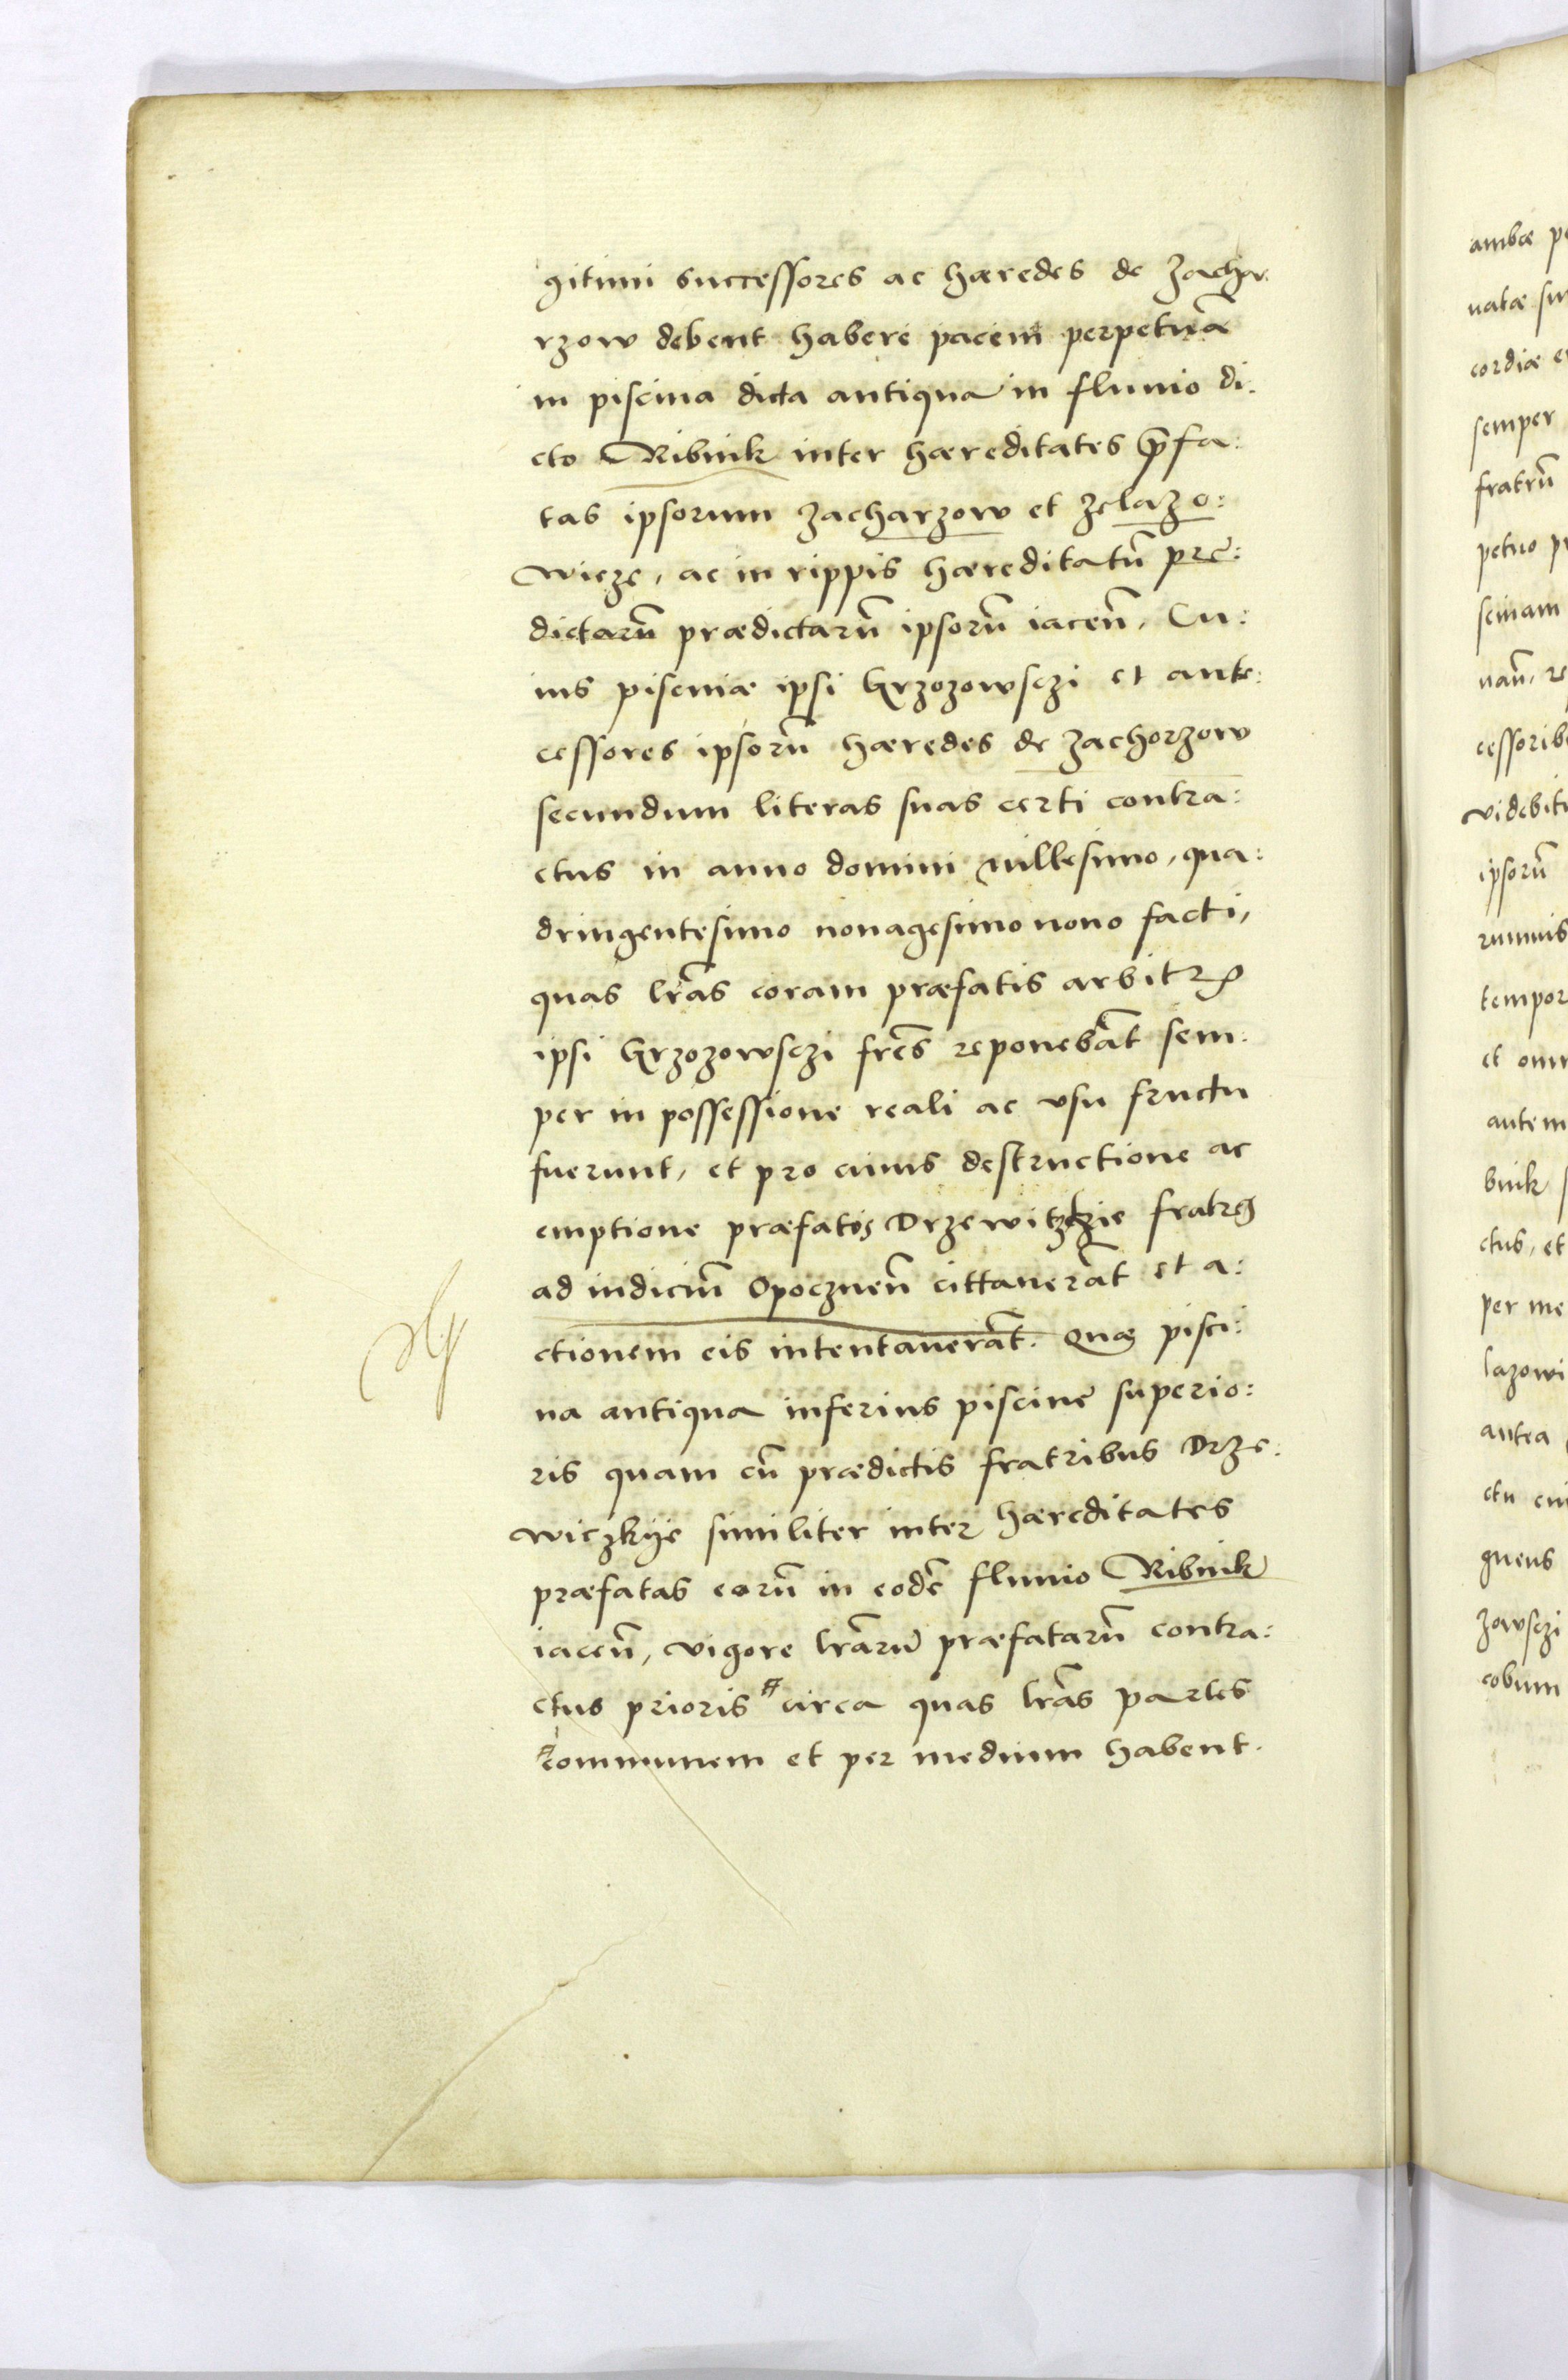 gitimi successores ac hæredes de Zacha:
rzow debent habere pacem perpetuã
in piscina dicta antiqua in fluuio di:
cto Ribnik inter hæreditates p̃fa:
tas ipsorum Zacharzow et Zelazo:
wicze, ac in rippis hæreditatũ pre:
dictarũ prædictarũ ipsorũ iaceñ, Cu:
ius piscinæ ipsi Grzozowsczi et ante:
cessores ipsorũ hæredes de Zachorzow
secundum literas suas certi contra:
ctus in anno domini millesimo, qua:
dringentesimo nonagesimo nono facti,
quas lr̃as coram præfatis arbitris
ipsi Grzozowsczi fr̃es reponebãt sem:
per in possessione reali ac vsu fructu
fuerunt, et pro cuius destructione ac
emptione præfatos fratres
ad iudiciũ Opoczneñ cittauerãt et a:
ctionem eis intentauerãt. Quæ pisci:
na antiqua inferius piscine superio:
ris quam cũ prædictis fratribus Drze:
wiczkÿe similiter inter hæreditates
præfatas earũ in eodẽ fluuio Ribnik
iaceñ, vigore lr̃arũ præfatarũ contra:
ctus prioris circa quas lr̃as partes
communem et per medium habent.
ambæ
cordiæ
semper
fratrũ
petuo
scinam
ipsorũ
et
autem
bnik
ctus, et
per me
antea
zowsczi
cobum